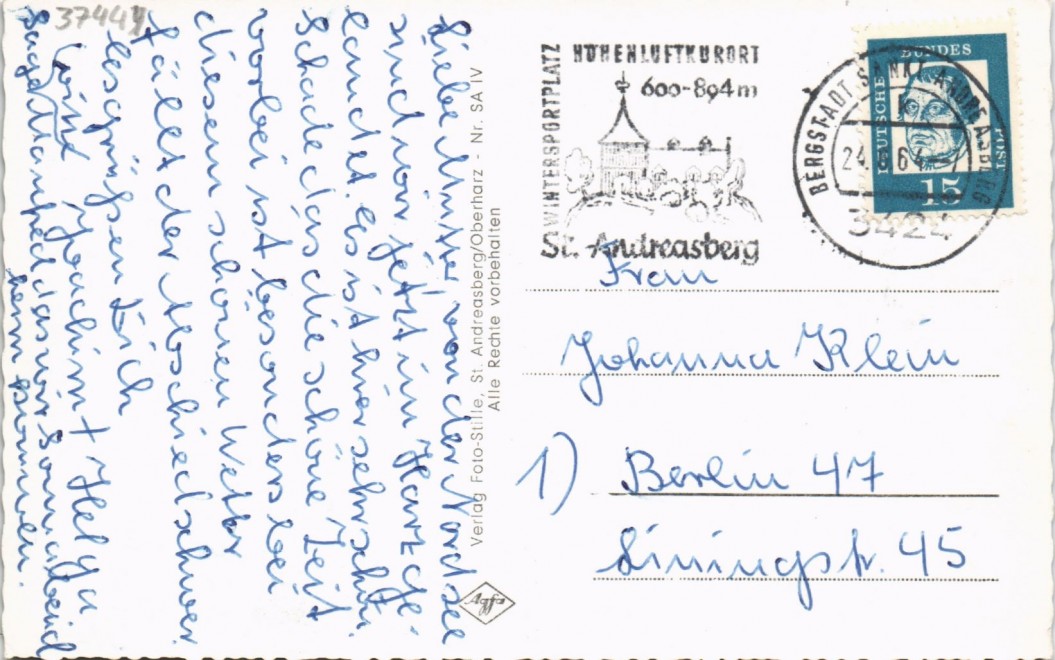 37449
Liebe Mutter, von der Nordsee
sind wir jetzt im Harz ge-
landet. Es ist hier sehr schön.
Schade das die schöne Zeit
vorbei ist besonders bei
diesem schönen Wetter
fällt der Abschied schwer.
Es grüßen Dich
Joachim + Helga
Sage das wir Sonnabend
heim kommen.
Verlag Foto-Stille, St. Andreasberg/Oberharz - Nr. SA IV
Alle Rechte vorbehalten
Agfa
WINTERSPORTPLATZ
HÖHENLUFTKURORT
600-894m
St. Andreasberg
BERGSTADT SANKT ANDREASBERG
3424
DEUTSCHE
BUNDES
POST
15
Frau
Johanna Klein
1) Berlin 47
45